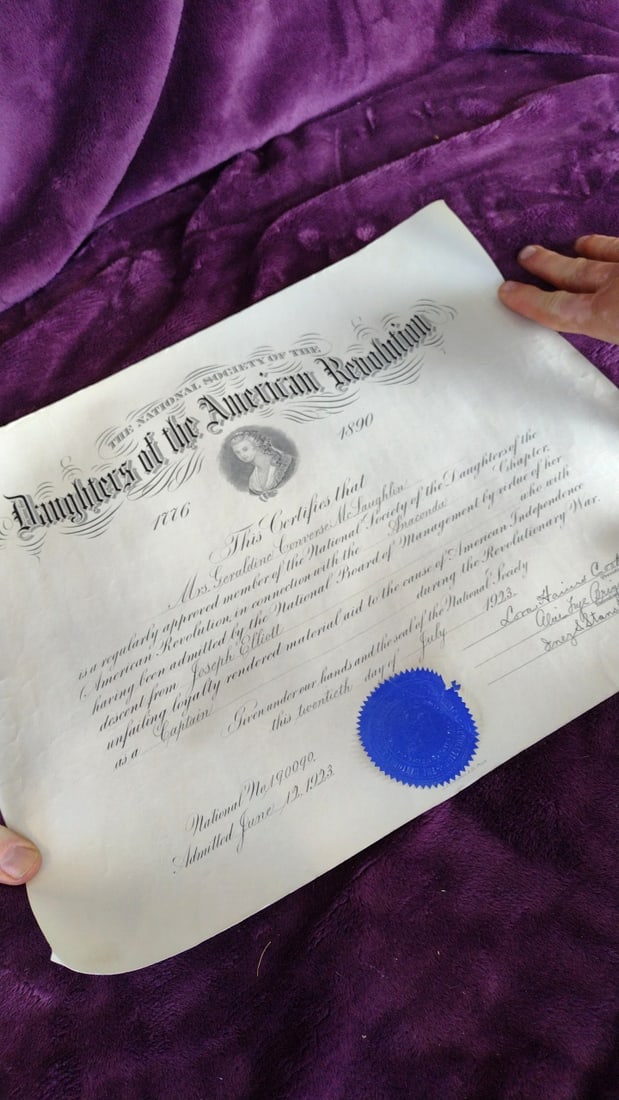 THE NATIONAL SOCIETY OF THE
Daughters of the American Revolution
1776 1890
This Certifies that
Mrs. Geraldine Converse McLaughlin
is a regularly approved member of the National Society of the Daughters of the
American Revolution, in connection with the Anaconda Chapter,
having been admitted by the National Board of Management by virtue of her
descent from Joseph Elliott who with
unfailing loyalty rendered material aid to the cause of American Independence
as a Captain during the Revolutionary War.
Given under our hands and the seal of the National Society
this twentieth day of July 1923.
Lora Haines
National No. 190090.
Admitted June 12, 1923